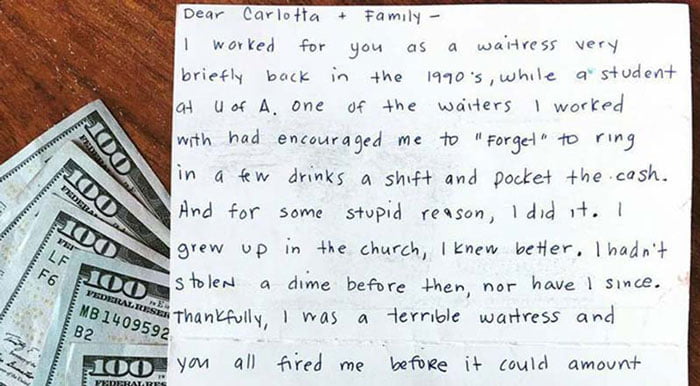 Dear Carlotta + Family –
I worked for you as a waitress very
briefly back in the 1990's, while a student
at U of A. One of the waiters I worked
with had encouraged me to "forget" to ring
in a few drinks a shift and pocket the cash.
And for some stupid reason, I did it. I
grew up in the church, I knew better. I hadn't
stolen a dime before then, nor have I since.
Thankfully, I was a terrible waitress and
you all fired me before it could amount
100
100
100
LF
F6
100
FEDERAL RESER
MB1409592
B2
100
FEDERAL RES